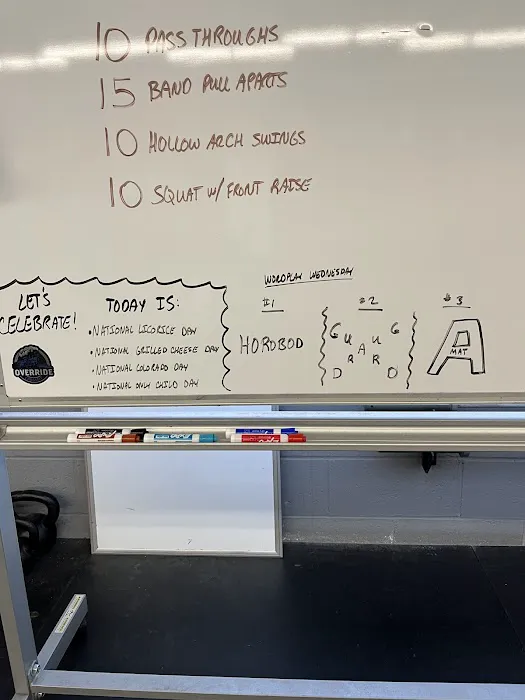 10 PASS THROUGHS
15 BAND PULL APARTS
10 HOLLOW ARCH SWINGS
10 SQUAT W/ FRONT RAISE
LET'S CELEBRATE!
OVERRIDE
TODAY IS:
• NATIONAL LICORICE DAY
• NATIONAL GRILLED CHEESE DAY
• NATIONAL COLORADO DAY
• NATIONAL ONLY CHILD DAY
WORDPLAY WEDNESDAY
#1
HOROBOD
#2
G U A R D
G U A R D
#3
A
MAT
EXPO